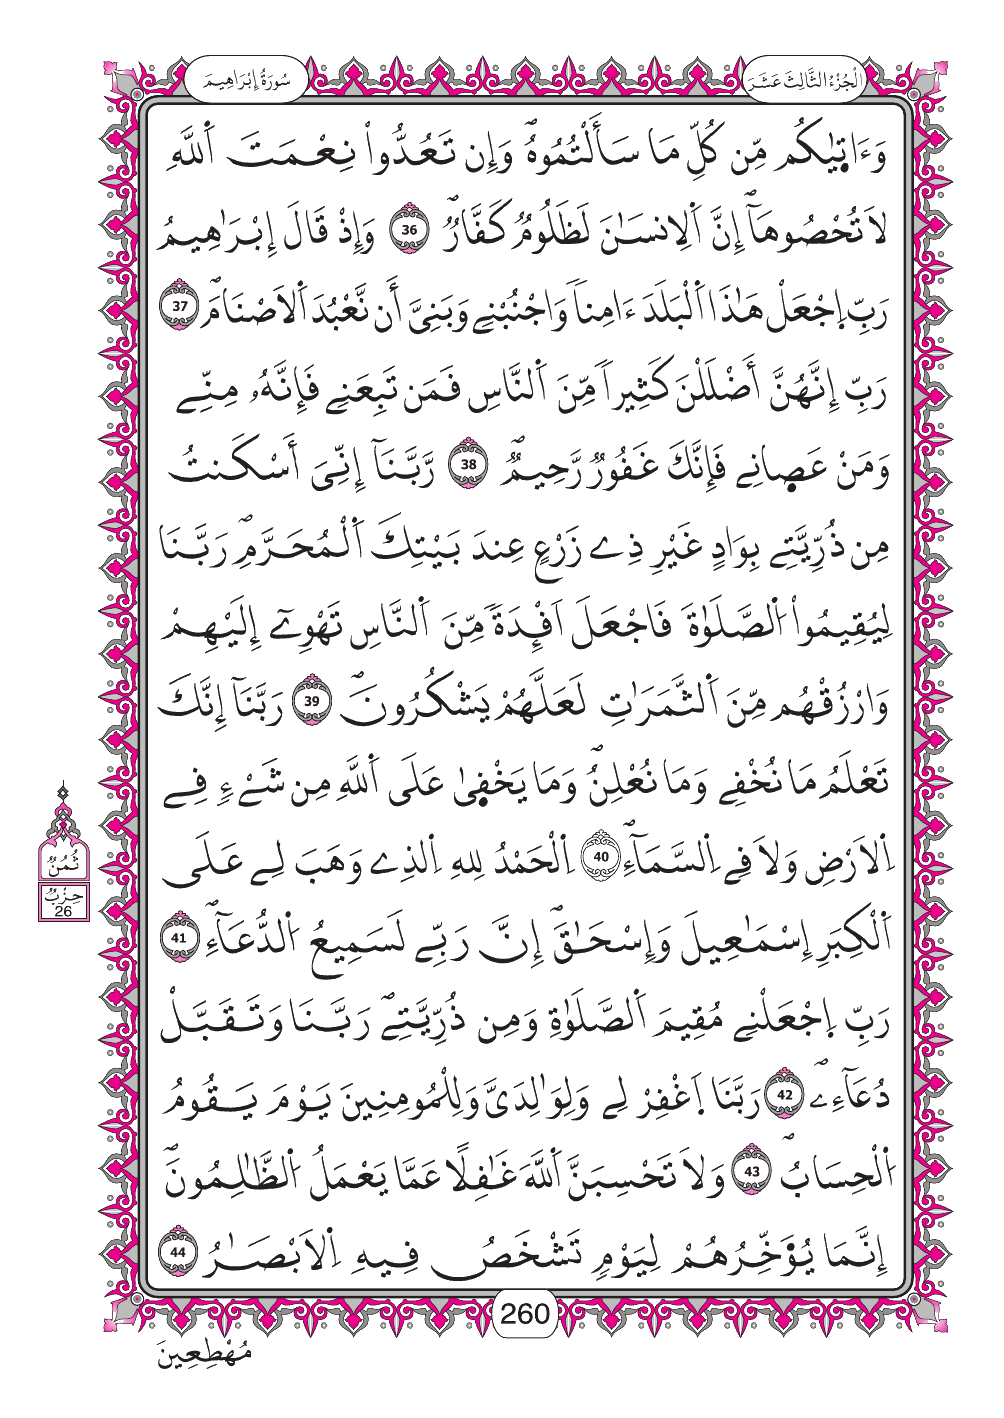 الْجُزْءُ الثَّالِثَ عَشَرَ
سُورَةُ إِبْرَاهِيمَ
وَءَات۪يٰكُم مِّن كُلِّ مَا سَأَلْتُمُوهُۖ وَإِن تَعُدُّواْ نِعْمَتَ اَ۬للَّهِ
لَا تُحْصُوهَآۖ إِنَّ اَ۬لِانسَٰنَ لَظَلُومٞ كَفَّارٞۖ 36 وَإِذْ قَالَ إِبْرَٰهِيمُ
رَبِّ اِ۪جْعَلْ هَٰذَا اَ۬لْبَلَدَ ءَامِناٗ وَاجْنُبْنِے وَبَنِيَّ أَن نَّعْبُدَ اَ۬لَاصْنَامَۖ 37
رَبِّ إِنَّهُنَّ أَضْلَلْنَ كَثِيراٗ مِّنَ اَ۬لنَّاسِ فَمَن تَبِعَنِے فَإِنَّهُۥ مِنِّے
وَمَنْ عَص۪انِے فَإِنَّكَ غَفُورٞ رَّحِيمٞۖ 38 رَّبَّنَآ إِنِّيَ أَسْكَنتُ
مِن ذُرِّيَّتِے بِوَادٍ غَيْرِ ذِے زَرْعٍ عِندَ بَيْتِكَ اَ۬لْمُحَرَّمِۖ رَبَّنَا
لِيُقِيمُواْ اُ۬لصَّلَوٰةَ فَاجْعَلَ اَفْـِٕدَةٗ مِّنَ اَ۬لنَّاسِ تَهْوِےٓ إِلَيْهِمْ
وَارْزُقْهُم مِّنَ اَ۬لثَّمَرَٰتِ لَعَلَّهُمْ يَشْكُرُونَۖ 39 رَبَّنَآ إِنَّكَ
تَعْلَمُ مَا نُخْفِے وَمَا نُعْلِنُۖ وَمَا يَخْف۪يٰ عَلَى اَ۬للَّهِ مِن شَےْءٖ فِے
اِ۬لَارْضِ وَلَا فِے اِ۬لسَّمَآءِۖ 40 اِ۬لْحَمْدُ لِلهِ اِ۬لذِے وَهَبَ لِے عَلَى
اَ۬لْكِبَرِ إِسْمَٰعِيلَ وَإِسْحَٰقَۖ إِنَّ رَبِّے لَسَمِيعُ اُ۬لدُّعَآءِۖ 41
رَبِّ اِ۪جْعَلْنِے مُقِيمَ اَ۬لصَّلَوٰةِ وَمِن ذُرِّيَّتِےۖ رَبَّنَا وَتَقَبَّلْ
دُعَآءِےۖ 42 رَبَّنَا اَ۪غْفِرْ لِے وَلِوَٰلِدَيَّ وَلِلْمُومِنِينَ يَوْمَ يَقُومُ
اُ۬لْحِسَابُۖ 43 وَلَا تَحْسِبَنَّ اَ۬للَّهَ غَٰفِلًا عَمَّا يَعْمَلُ اُ۬لظَّٰلِمُونَۖ
إِنَّمَا يُؤَخِّرُهُمْ لِيَوْمٖ تَشْخَصُ فِيهِ اِ۬لَابْصَٰرُ 44
ثُمُنٌ
حِزْبٌ
26
260
مُهْطِعِينَ